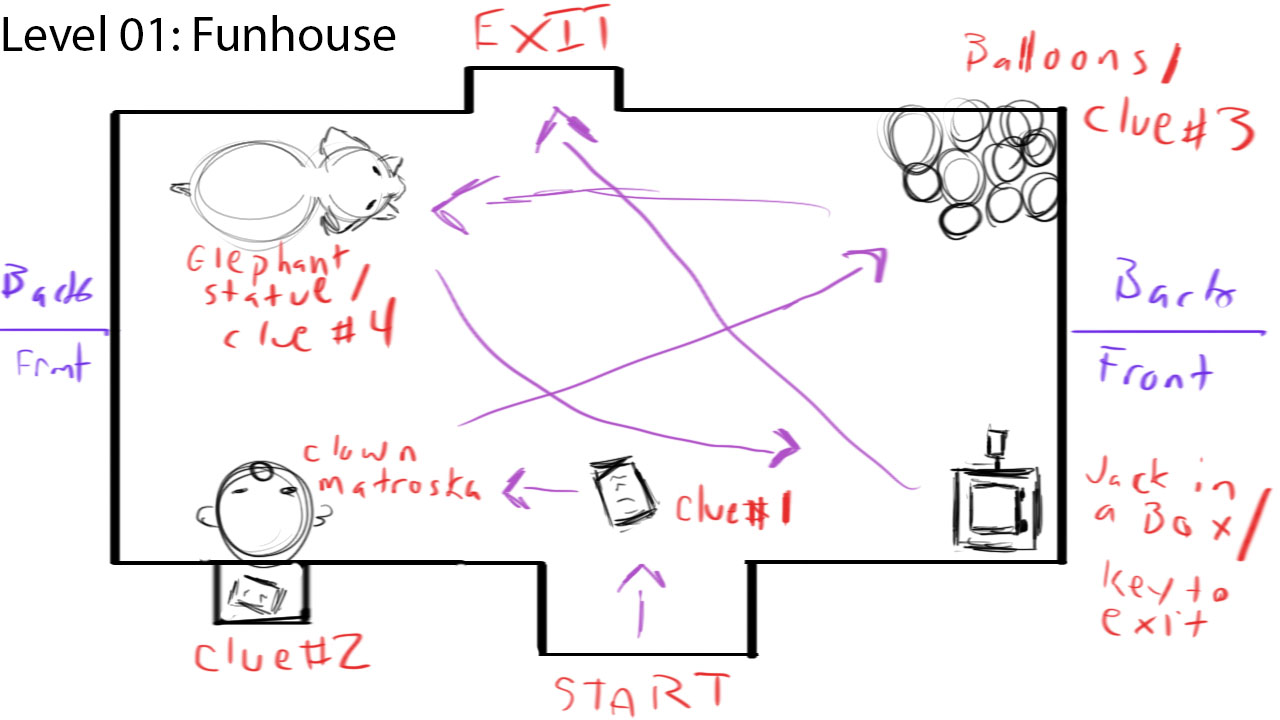 Level 01: Funhouse
EXIT
Balloons/
clue#3
Elephant
statue/
clue #4
Back
Front
Back
Front
clown
matroska
clue#1
Jack in
a Box/
key to
exit
clue#2
START